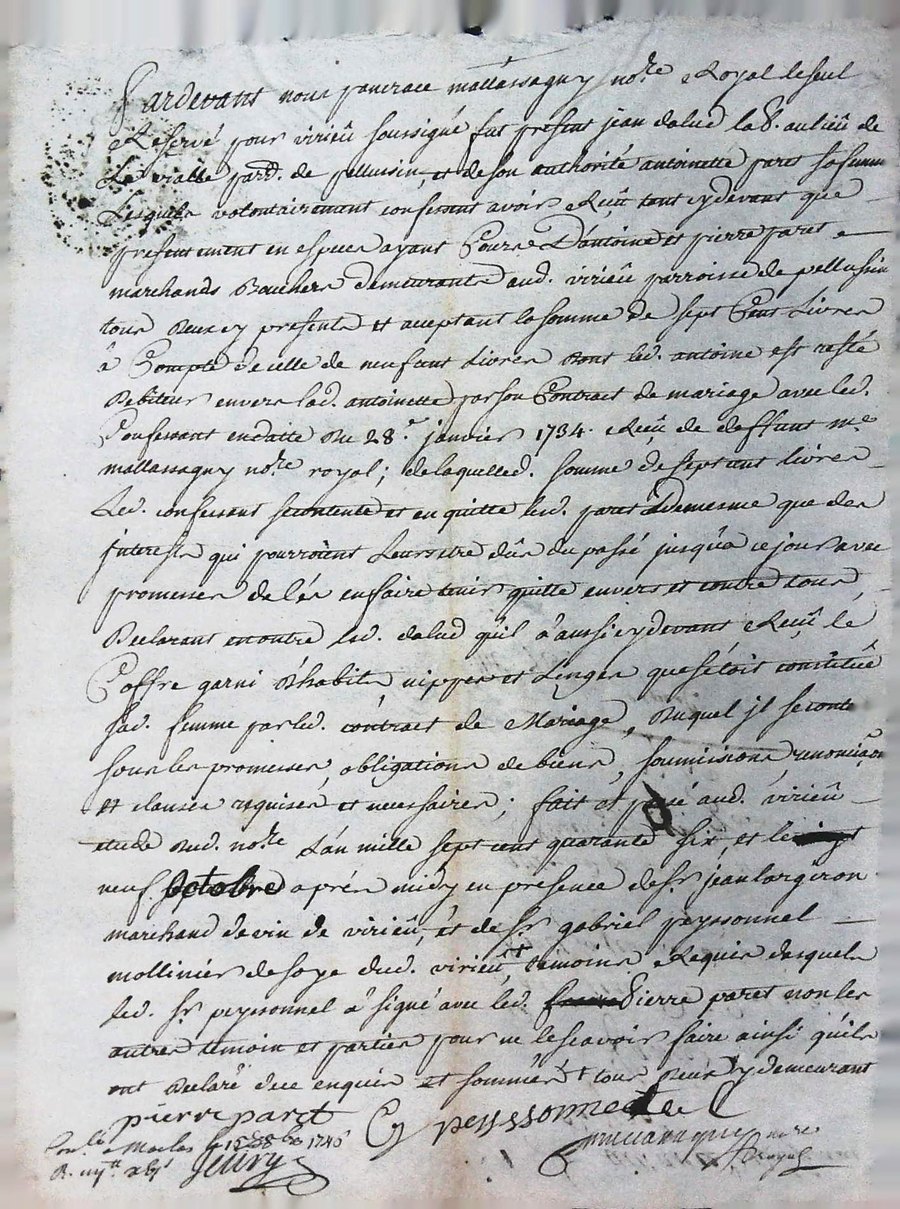 Pardevant nous pancrace mallassagny no.re Royal le seul
Reservé pour virieû soussigné fut present jean dalud lab.r au lieû de
La vialle parr. de pellussin, et de son authorité antoinette paret sa femme
Lesquels volontairement confessent avoir Reçû tant cydevant que
presentement en especes ayant Cours D'antoine et pierre paret
marchands Bouchers demeurants aud. virieû parroisse de pellussin
tous deux y presents et aceptant la somme de sept Cent Livres
à Compte de celle de neuf cent Livres dont led. antoine est resté
Debiteur envers lad. antoinette par son Contract de mariage avec led.
Confessant en datte du 28.e janvier 1734. Reçû de deffunt m.e
mallassagny no.re royal; de laquelle d. somme de sept cent livres
Led. confessant se contente et en quitte led. paret Demesme que des
jnterests qui pourroient Leurs etre dûs du passé jusqu'a ce jour avec
promesses de lés en faire tenir quitte envers et contre tous
Declarant en outre led. dalud qu'il à aussi cydevant Reçû le
Coffre garni d'habits, nippes et Linges que s'étoit constitüé
sad. femme par led. contract de Mariage, duquel jl se conte
sous les promesses, obligations de biens, soumissions renonciaôn
et clauses requises et necessaires; fait et passé aud. virieû
etude dud. no.re L'an mille sept cent quarante six, et le
neuf. octobre aprés midy en presence de s.r jean
marchand de vin de virieû, et de s.r gabriel peyssonnel
mollinier de soye dud. virieû, temoins Requis desquels
led. s.r peyssonnel à signé avec led. Pierre paret non les
autres temoin et parties pour ne le scavoir faire ainsi qu'ils
ont declaré de ce enquis et sommés et tous deux y demeurant
pierre paret G peyssonnel
no.re
Royal